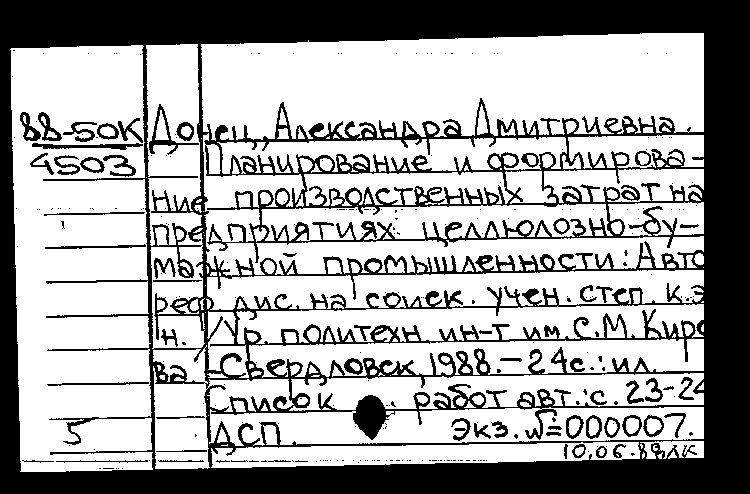 88-50К Донец, Александра Дмитриевна.
4503 Планирование и формирова-
ние производственных затрат на
предприятиях целлюлозно-бу-
мажной промышленности: Авто
реф. дис. на соиск. учен. степ. к.э
н. /Ур. политехн ин-т им. С.М. Киро
ва -Свердловск, 1988.-24с.:ил.
Список работ авт.:с. 23-24
5 ДСП. Экз.№=000007.
10.06.88